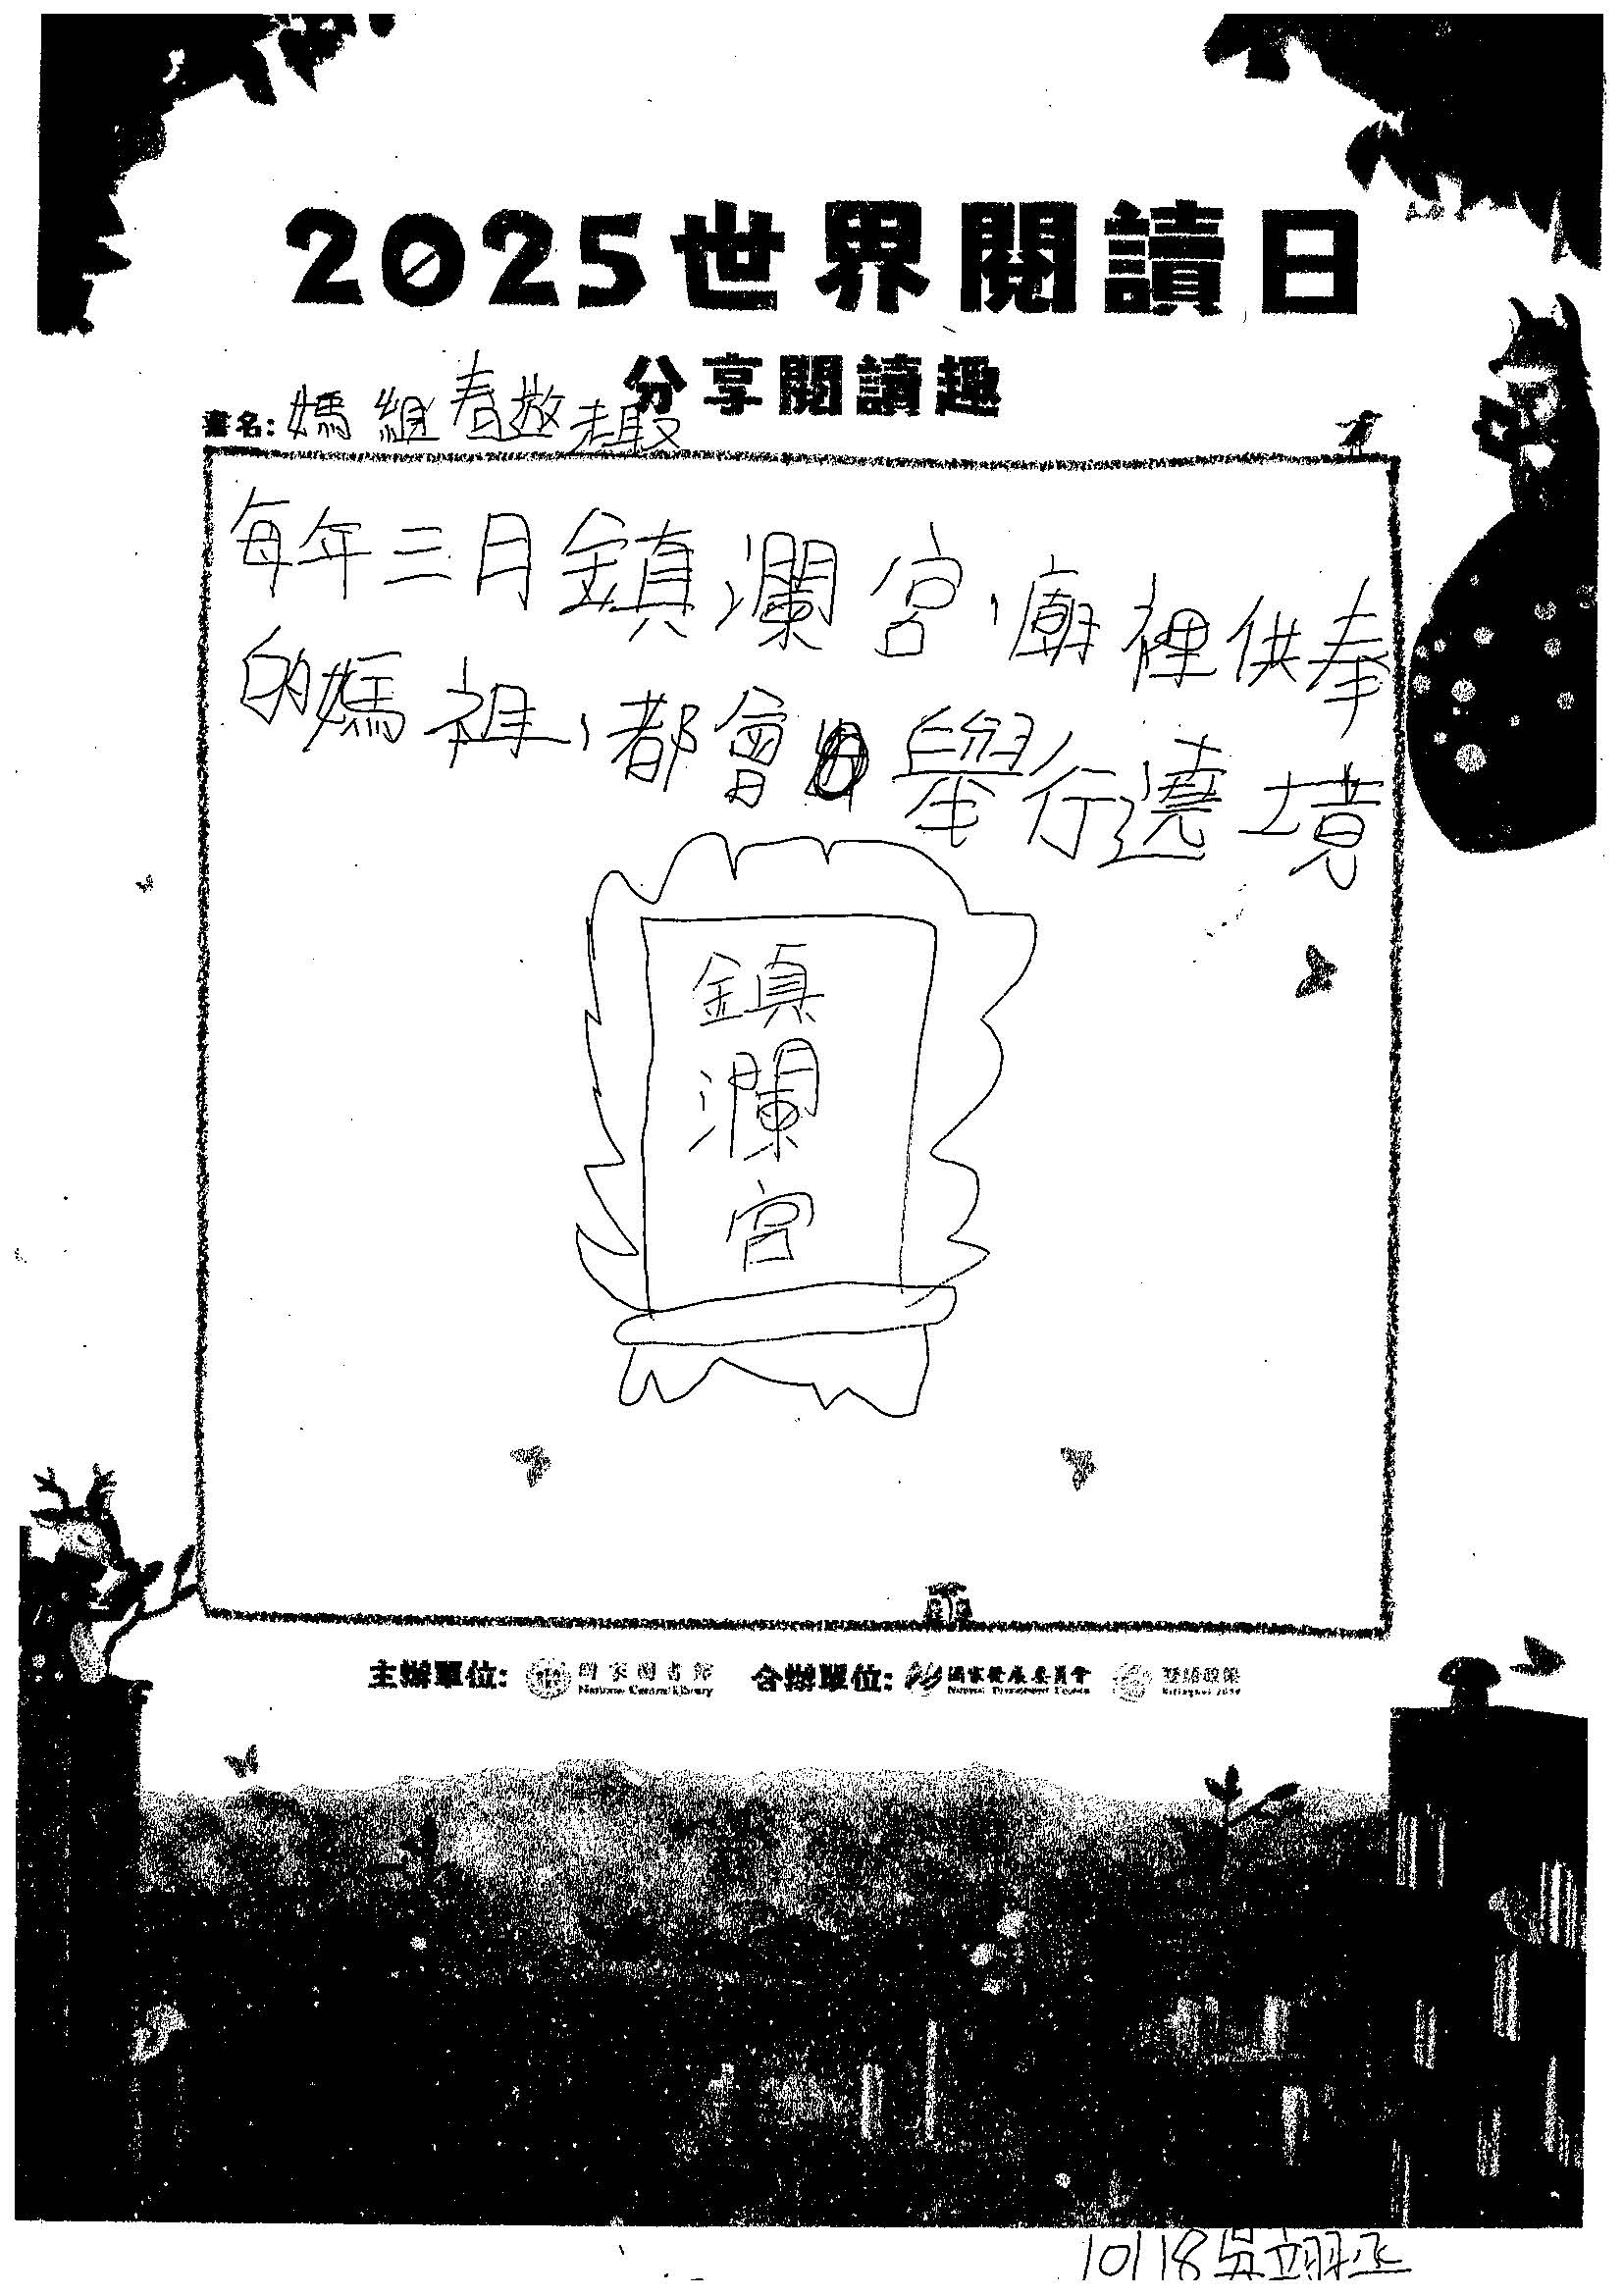 2025世界閱讀日
分享閱讀趣
書名: 媽組春遊趣
每年三月鎮瀾宮,廟裡供奉
的媽祖,都會舉行遶境
鎮
瀾
宮
主辦單位: 國家圖書館 合辦單位: 國家發展委員會 雙語政策
National Central Library National Development Council Bilingual 2030
10118吳翊丞